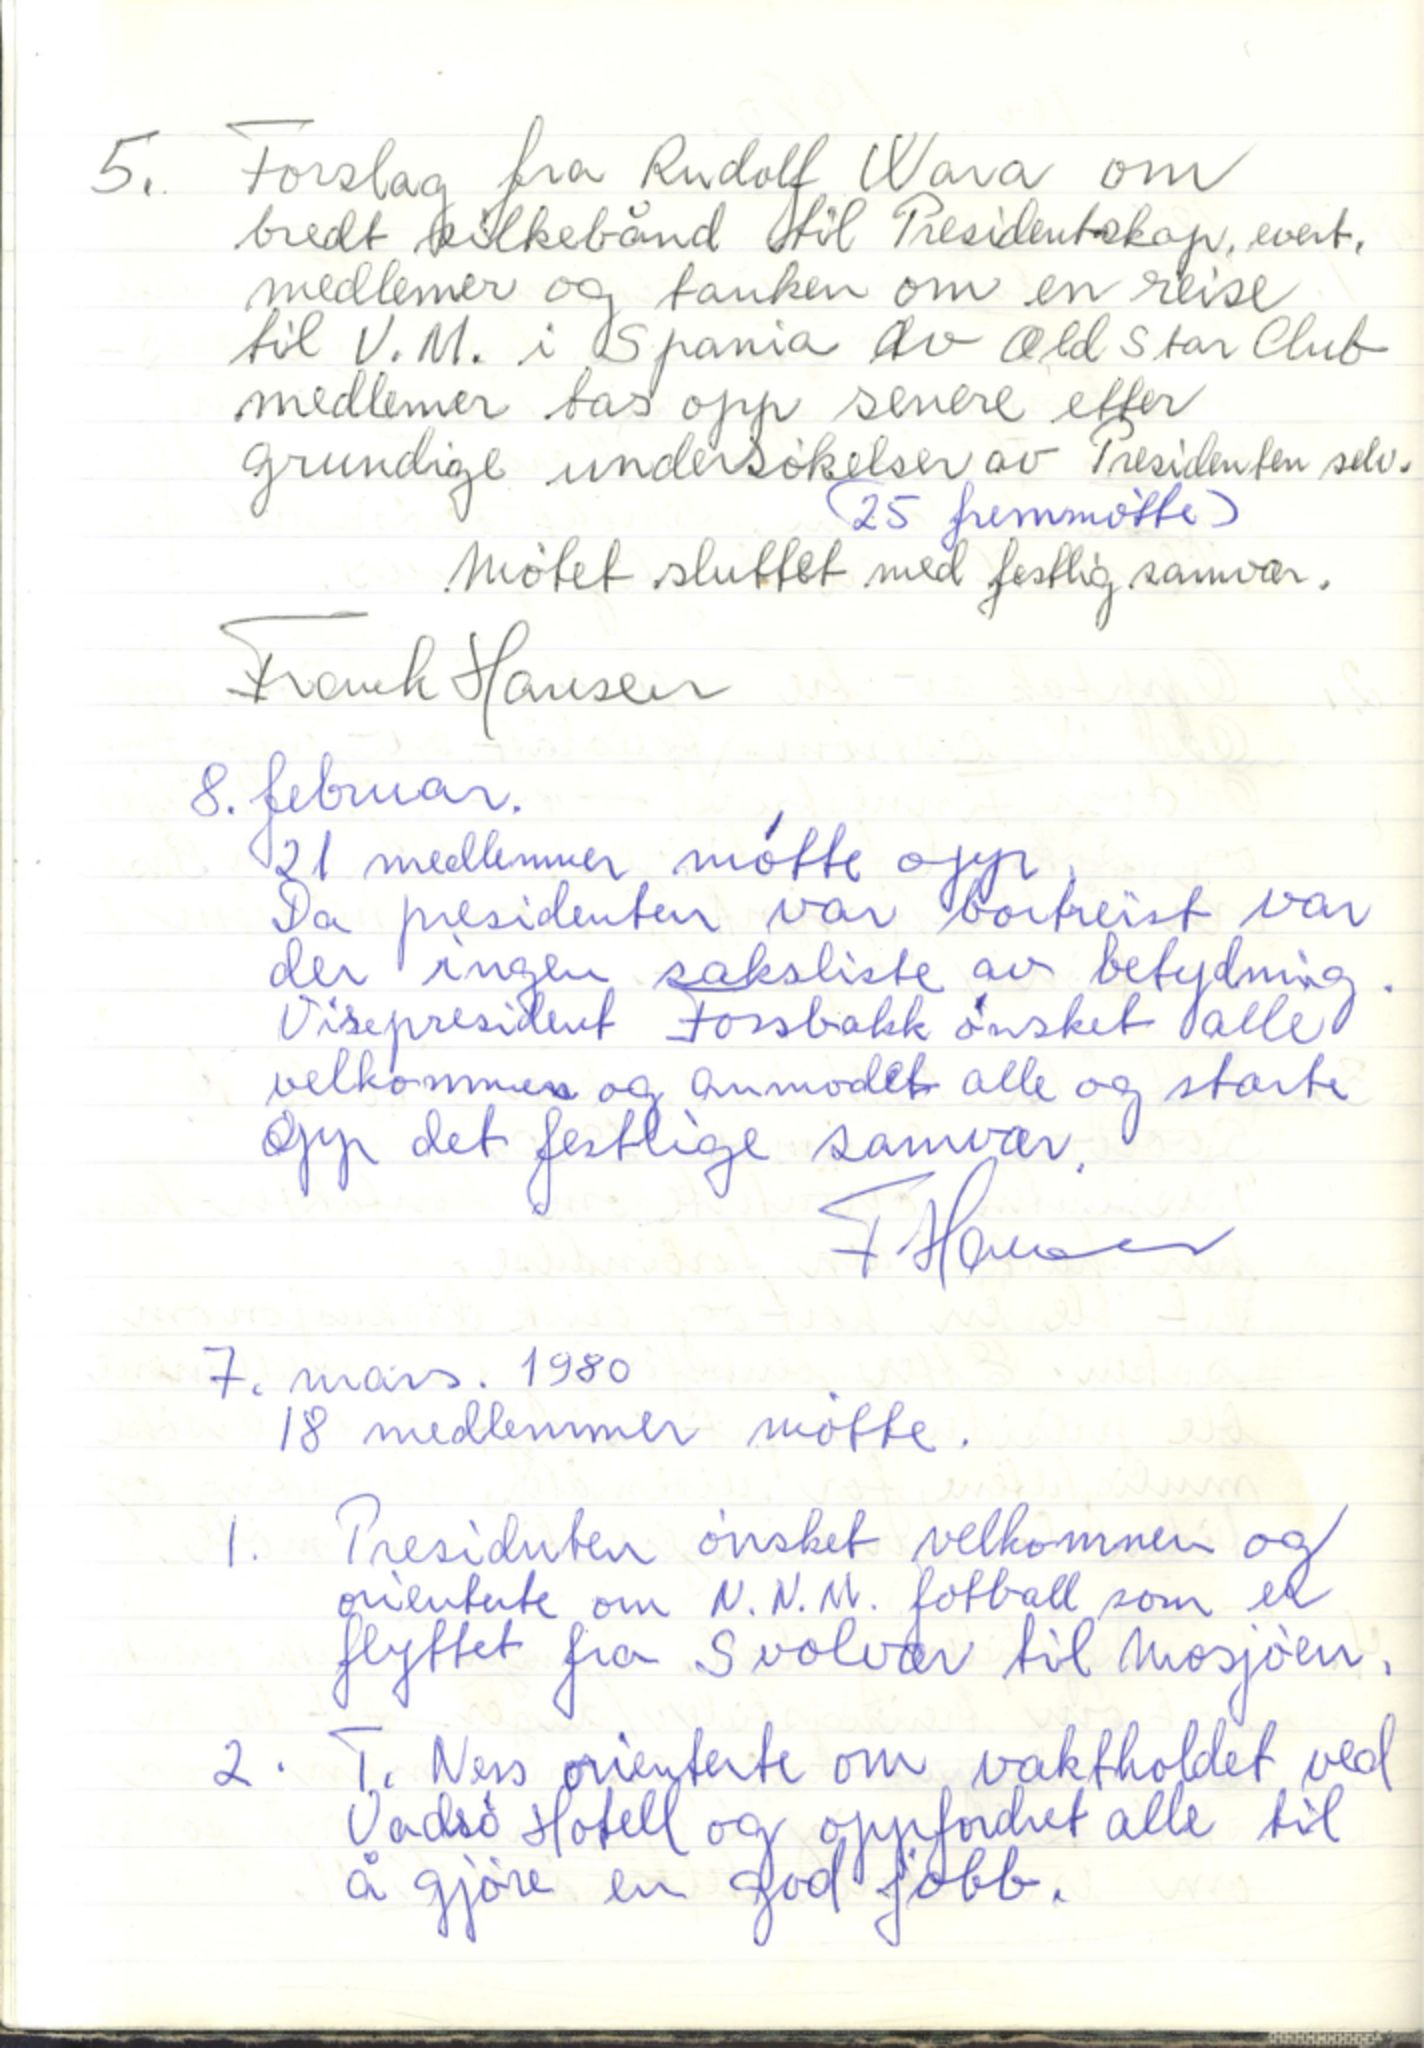 5. Forslag fra Rudolf Wara om
bredt silkebånd til Presidentskap, evert.
medlemer og tanken om en reise
til V.M. i Spania av Old Star Club
medlemer tas opp senere etter
grundige undersökelser av Presidenten selv.
(25 fremmötte)
Mötet sluttet med festlig samvær.
Frank Hansen
8. februar.
21 medlemmer mötte opp.
Da presidenten var bortreist var
der ingen saksliste av betydning.
Visepresident Fossbakk önsket alle
velkommen og anmodet alle og starte
opp det festlige samvær.
F Hansen
7. mars. 1980
18 medlemmer mötte.
1. Presidenten önsket velkommen og
orienterte om N.N.M. fotball som er
flyttet fra Svolvær til Mosjöen.
2. T. Ness orienterte om vaktholdet ved
Vadsö Hotell og oppfordret alle til
å gjöre en god jobb.